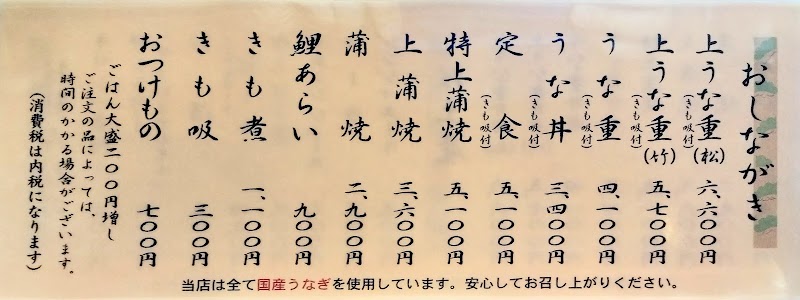 おしながき
上うな重(松)(きも吸付) 六、六〇〇円
上うな重(竹)(きも吸付) 五、七〇〇円
うな重(きも吸付) 四、一〇〇円
うな丼(きも吸付) 三、四〇〇円
定食(きも吸付) 五、一〇〇円
特上蒲焼 五、一〇〇円
上蒲焼 三、六〇〇円
蒲焼 二、九〇〇円
鯉あらい 九〇〇円
きも煮 一、一〇〇円
きも吸 三〇〇円
おつけもの 七〇〇円
ごはん大盛二〇〇円増し
ご注文の品によっては、
時間のかかる場合がございます。
(消費税は内税になります)
当店は全て国産うなぎを使用しています。安心してお召し上がりください。